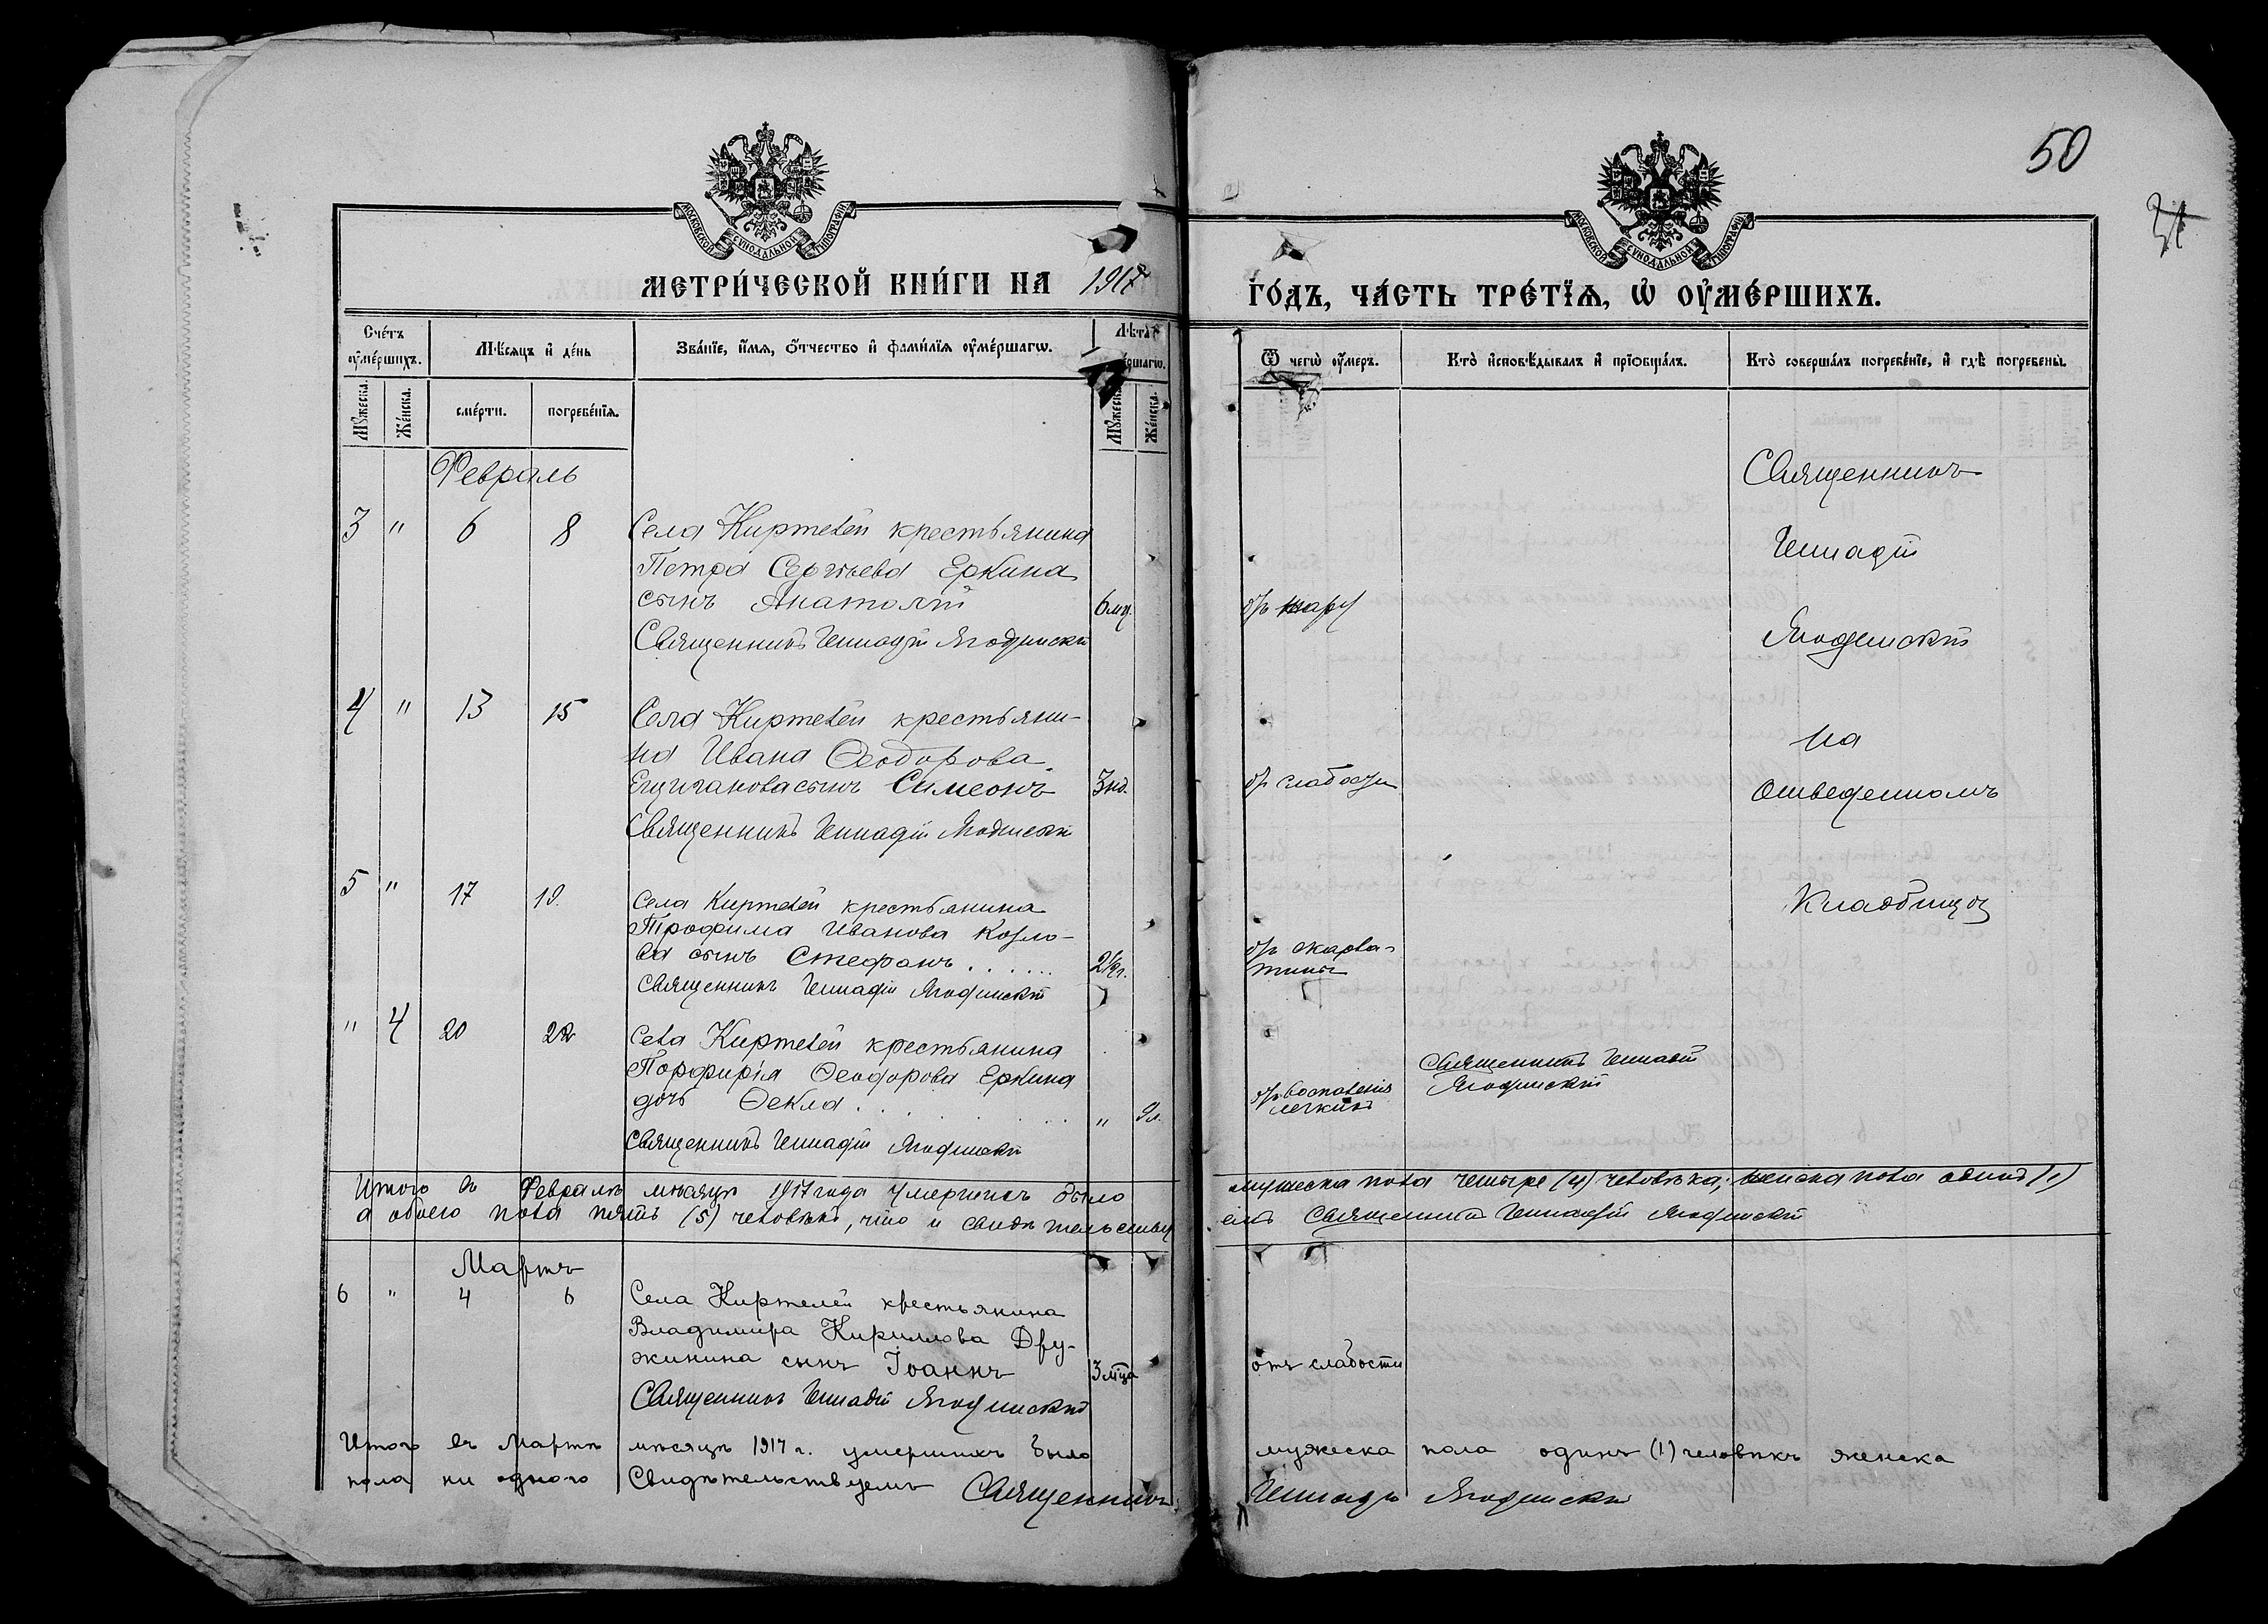 50
31
МОСКОВСКОЙ СѴНОДАЛЬНОЙ ТИПОГРАФІИ.
МОСКОВСКОЙ СѴНОДАЛЬНОЙ ТИПОГРАФІИ.
МЕТРИ́ЧЕСКОЙ КНИ́ГИ НА 1917
ГО́ДЪ, ЧА́СТЬ ТРЕ́ТІѦ, Ѡ҆ ОУ҆МЕ́РШИХЪ.
Сче́тъ оу҆ме́ршихъ.
Мѣ́сяцъ и҆ де́нь
Зва́нїе, и҆́мѧ, ѻ҆́тчество и҆ фами́лїѧ оу҆ме́ршагѡ.
Лѣ́та
Ѿ чегѡ̀ оу҆́меръ.
Кто̀ и҆сповѣ́дывалъ и҆ прїѡбща́лъ.
Кто̀ соверша́лъ погребе́нїе, и҆ гдѣ̀ погребены̀.
Мꙋ́жеска.
Же́нска.
сме́рти.
погребе́нїѧ.
Мꙋ́жеска.
Же́нска.
Февраль
Священникъ
3 " 6 8 Села Киртелей крестьянина
Петра Сергѣева Еркина
сынъ Анатолій 6 мц.
Священникъ Геннадій Ягодинскій
от жару
Геннадій
Ягодинскій
4 " 13 15 Села Киртелей крестьяни-
на Ивана Ѳеодорова
сынъ Симеонъ 3 нд.
Священникъ Геннадій Ягодинскій
от слабости
на
отведенномъ
5 " 17 19. Села Киртелей крестьянина
Трофима Иванова Козло-
ва сынъ Стефанъ . . . . . . 2½ г.
Священникъ Геннадій Ягодинскій
от скарла-
тины
кладбищѣ
" 4 20 22 Села Киртелей крестьянина
Порфирія Ѳеодорова Еркина
дочь Ѳекла . . . . . " 9 л.
Священникъ Геннадій Ягодинскій
от воспаленія
легкихъ
Священникъ Геннадій
Ягодинскій
Итого въ Февралѣ мѣсяцѣ 1917 года умершихъ было мужеска пола четыре (4) человѣка, женска пола одинъ (1)
а обоего пола пять (5) человѣкъ, что и свидѣтельству емъ Священникъ Геннадій Ягодинскій
Мартъ
6 " 4 6 Села Киртелей крестьянина
Владимира Кириллова Дру-
жинина сынъ Іоаннъ 3 м-ца
отъ слабости
Священникъ Геннадій Ягодинскій
Итого въ Мартѣ мѣсяцѣ 1917 г. умершихъ было мужеска пола одинъ (1) человѣкъ женска
пола ни одного Свидѣтельствуемъ Священникъ Геннадій Ягодинскій